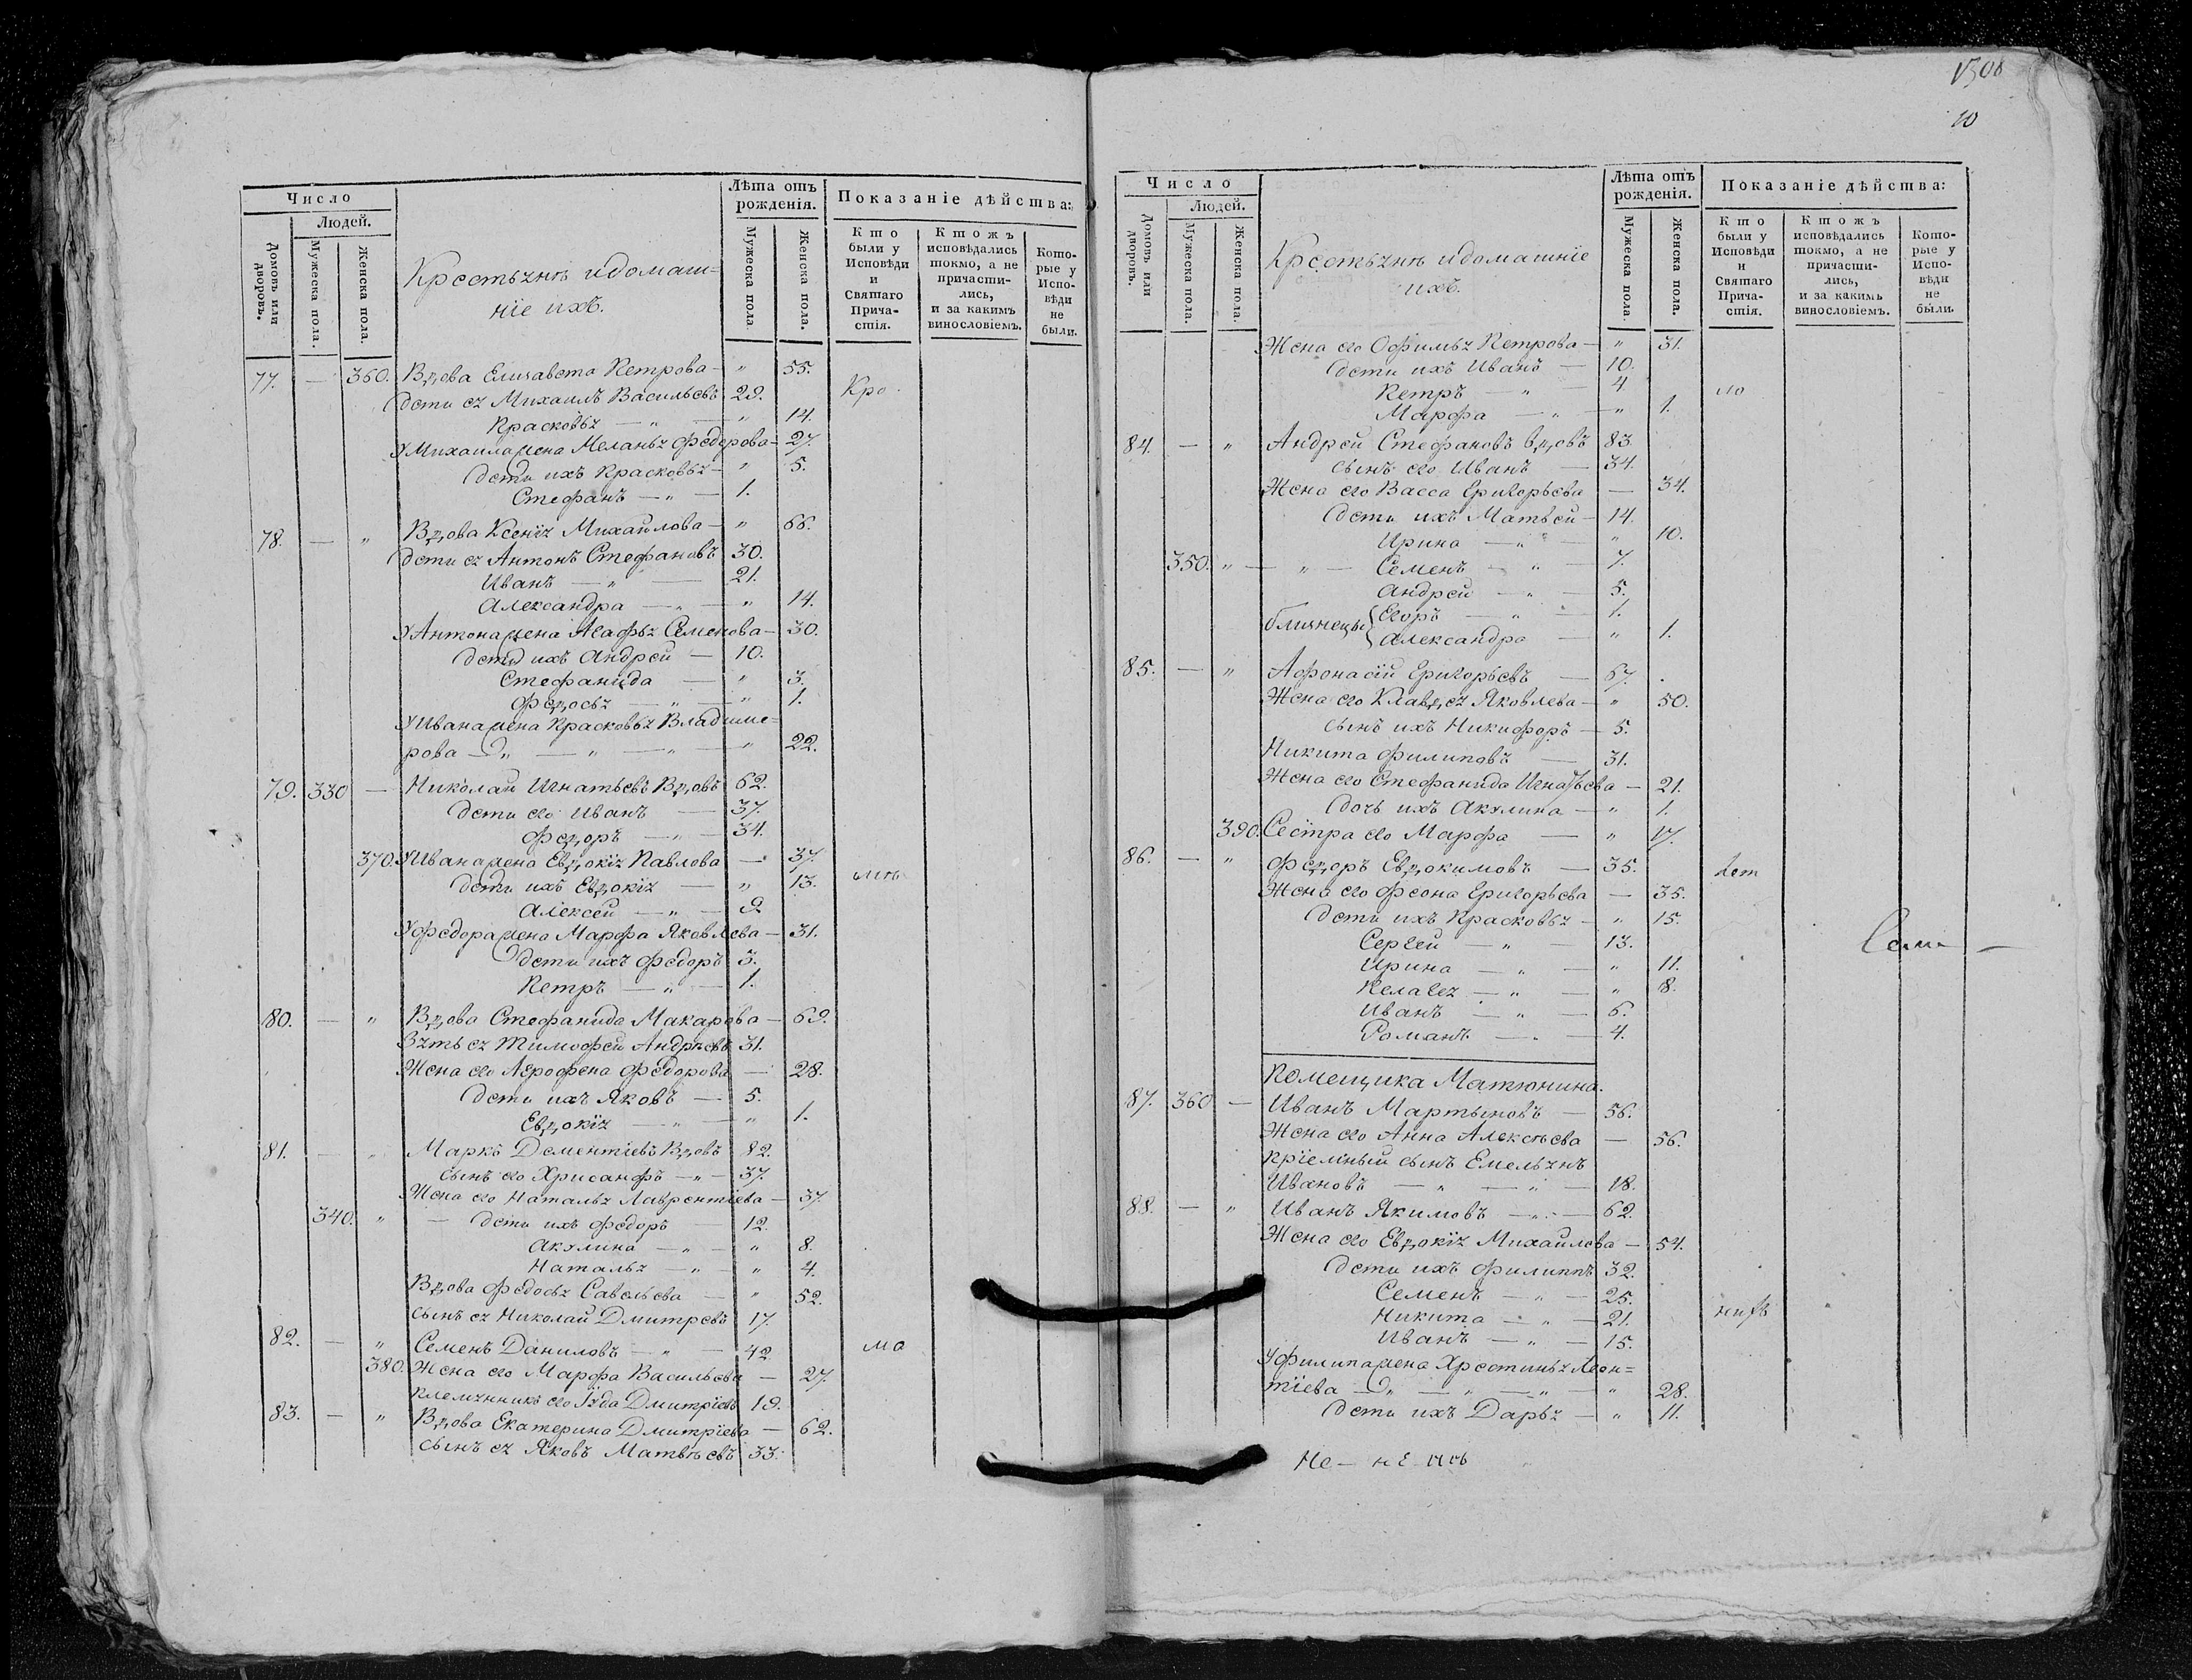 1308
10
Число
Людей.
Домовъ или дворовъ.
Мужеска пола.
Женска пола.
Крестьянъ и домаш=
ніе ихъ.
Лѣта отъ рожденія.
Мужеска пола.
Женска пола.
Показаніе дѣйства:
Кто были у Исповѣди и Святаго Прича-стія.
Ктожъ исповѣдались токмо, а не причасти-лись, и за какимъ винословіемъ.
Кото-рые у Испо-вѣди не были.
77. — 360. Вдова Елисавета Петрова — " 55.
дети ея Михаилъ Васильевъ 29. Кро
Прасковья — " — " 14.
У Михаила жена Меланья Федорова — 27.
дети ихъ Прасковья — " 5.
Стефанъ — " — 1.
78. — " Вдова Ксенія Михайлова — " 66.
дети ея Антонъ Стефановъ 30.
Иванъ — " — 21.
Александра — " — " 14.
У Антона жена Агафья Семенова — 30.
дети ихъ Андрей — 10.
Стефанида — " 3.
Федосья — " — " 1.
У Ивана жена Прасковья Владиме=
рова — " — " — " — " 22.
79. 330 — Николай Игнатьевъ Вдовъ 62.
дети его Иванъ — 37.
Федоръ — " — 34.
370. У Ивана жена Евдокія Павлова — 37.
дети ихъ Евдокія — " 13.
Алексей — " — 9.
У Федора жена Марфа Яковлева — 31.
дети ихъ Федоръ 3.
Петръ — " — 1.
80. — " Вдова Стефанида Макарова — 69.
Зять ея Тимофей Андреевъ 31.
Жена его Агрофена Федорова — 28.
дети ихъ Яковъ — 5.
Евдокія — " — " 1.
81. — " Маркъ Дементіевъ Вдовъ 82.
сынъ его Хрисанфъ — " — 37.
Жена его Наталья Лаврентіева — 37.
340. " — дети ихъ Федоръ — 12.
Акулина — " — " 8.
Наталья — " — " 4.
Вдова Федосья Савельева — " 52.
сынъ ея Николай Дмитревъ 17.
82. — " Семенъ Даниловъ — " — 42. ма
380. Жена его Марфа Васильева — 27.
племянникъ его Іуда Дмитріевъ 19.
83. — " Вдова Екатерина Дмитріева — 62.
сынъ ея Яковъ Матвѣевъ 33.
Число
Людей.
Домовъ или дворовъ.
Мужеска пола.
Женска пола.
Крестьянъ и домашніе
ихъ.
Лѣта отъ рожденія.
Мужеска пола.
Женска пола.
Показаніе дѣйства:
Кто были у Исповѣди и Святаго Прича-стія.
Ктожъ исповѣдались токмо, а не причасти-лись, и за какимъ винословіемъ.
Кото-рые у Испо-вѣди не были.
Жена его Офимья Петрова — " 31.
дети ихъ Иванъ — 10.
Петръ — " — 4 ло
Марфа — " — " 1.
84. — " Андрей Стефановъ вдовъ 83.
сынъ его Иванъ — 34.
Жена его Васса Григорьева — 34.
дети ихъ Матвей — 14.
Ирина — " — " 10.
350. " — " — Семенъ — " — 7.
Андрей — " — 5.
близнецы Егоръ — " — 1.
Александра — " 1.
85. — " Афонасій Григорьевъ — 67.
Жена его Клавдея Яковлева — " 50.
сынъ ихъ Никифоръ — 5.
Никита Филиповъ — 31.
Жена его Стефанида Игнатьева — 21.
дочь ихъ Акулина — " 1.
390. Сестра его Марфа — " 17.
86. — " Федоръ Евдокимовъ — 35.
Жена его Феона Григорьева — 35.
дети ихъ Прасковья — " 15.
Сергей — " — 13.
Ирина — " — " 11.
Пелагея — " — " 8.
Иванъ — " — 6.
Романъ — " — 4.
Помещика Матюнина.
87. 360 — Иванъ Мартыновъ — 56.
Жена его Анна Алексѣева — 56.
пріемный сынъ Емельянъ
Ивановъ — " — " — 18.
88. — " Иванъ Якимовъ — " — 62.
Жена его Евдокія Михайлова — 54.
дети ихъ Филиппъ 32.
Семенъ — " — 25.
Никита — " — 21.
Иванъ — " — 15.
У Филипа жена Хрестинья Леон=
тіева — " — " — " — " 28.
дети ихъ Дарья — " 11.